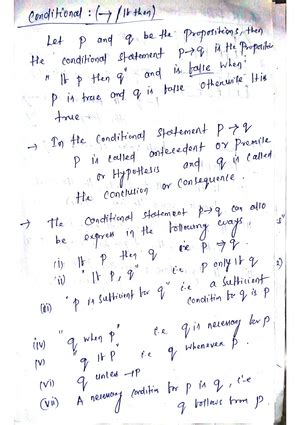 Conditional : (→ / If then)
Let p and q be the Propositions, then
the "conditional statement p→q is the Proposition
" If p then q" and is false when
p is true and q is false otherwise It is
true.
→ In the Conditional Statement p→q
p is called antecedent or Premise
or Hypothesis and q is called
the Conclusion or Consequence.
→ The Conditional Statement p→q can also
be express in the following ways
(i) If p then q i.e p→q.
(ii) "If p, q" i.e. p only if q
(iii) "p is sufficient for q" i.e a sufficient
condition for q is p
(iv) "q when p" i.e q is necessary for p
(v) "q If p" i.e q whenever p.
(vi) q unless ¬p
(vii) A necessary condition for p is q, i.e
q follows from p.